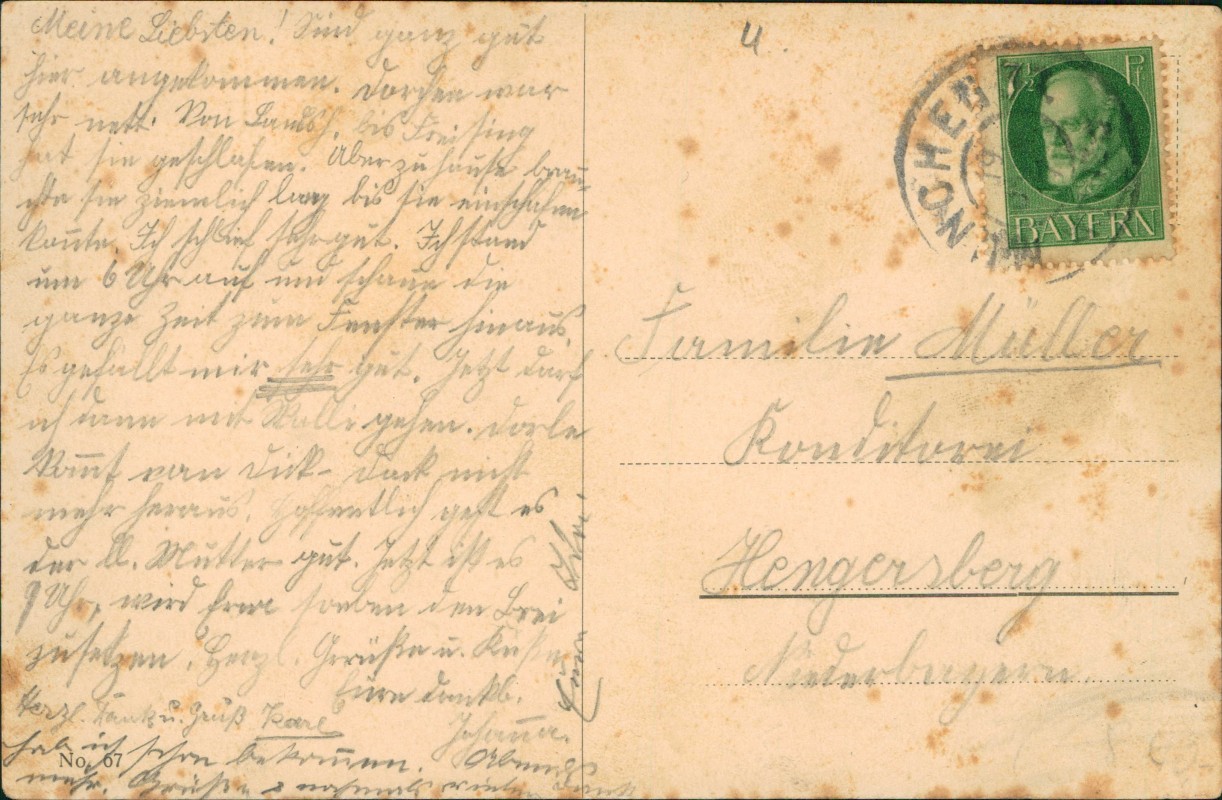 Meine Liebsten! Sind ganz gut
hier angekommen. Dorchen war
sehr nett. Von Landsh. bis Freising
hat sie geschlafen. Aber zuhause brau-
chte sie ziemlich lang bis sie einschlafen
konnte. Ich schlief sehr gut. Ich stand
um 6 Uhr auf und schaue die
ganze Zeit zum Fenster hinaus.
Es gefällt mir sehr gut. Jetzt darf
ich dann mit Walli gehen. Dorle
kommt von Dick-Dack nicht
mehr heraus. Hoffentlich geht es
der lb. Mutter gut. Jetzt ist es
9 Uhr, wird Erna soeben den Brei
zusetzen. Herzl. Grüße u. Küße
Eure dankb.
Johanna.
Herzl. Dank u. Gruß Karl
hab ich schon bekommen. Abends
mehr. Grüße & nochmals vielen Dank
No. 67
4.
MÜNCHEN
7½ Pf
BAYERN
Familie Müller
Konditorei
Hengersberg
Niederbayern.